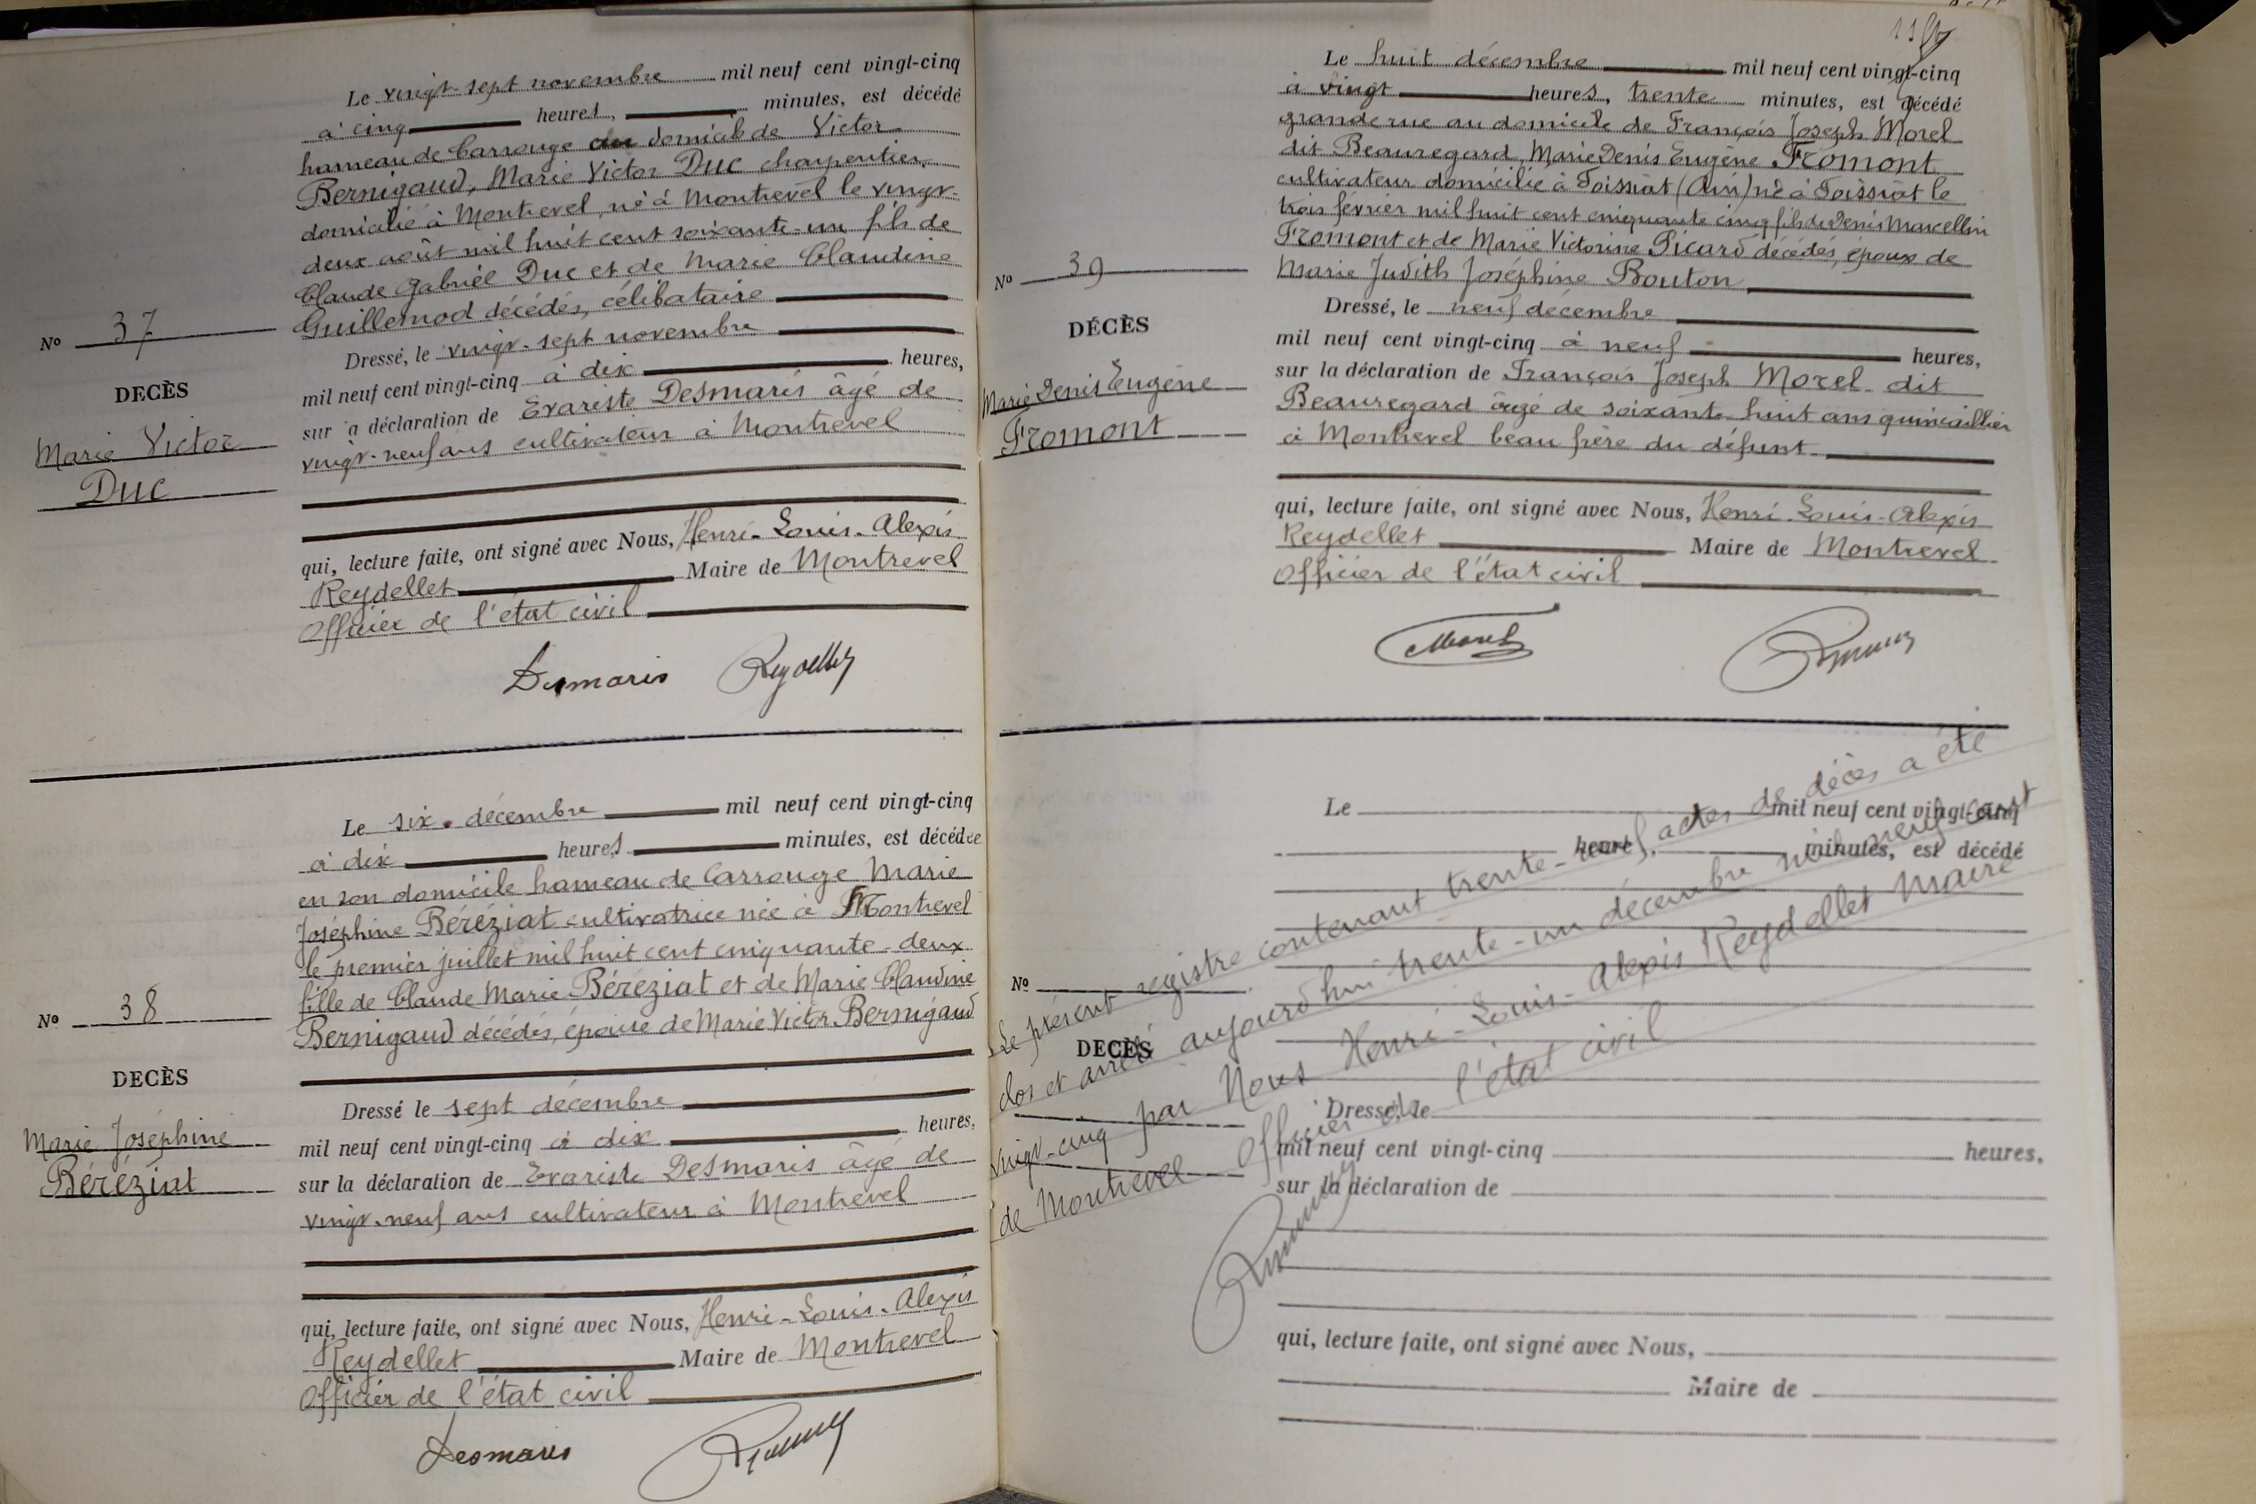 Le vingt-sept novembre mil neuf cent vingt-cinq
à cinq heures, minutes, est décédé
hameau de Carrouge au domicile de Victor
Bernigaud, Marie Victor Duc charpentier
domicilié à Montrevel, né à Montrevel le vingt-
deux août mil huit cent soixante-un fils de
Claude Gabriel Duc et de Marie Claudine
Guillemod décédés, célibataire
Dressé, le vingt-sept novembre
mil neuf cent vingt-cinq à dix heures,
sur a déclaration de Evariste Desmaris âgé de
vingt-neuf ans cultivateur à Montrevel
qui, lecture faite, ont signé avec Nous, Henri-Louis-Alexis
Reydellet Maire de Montrevel
Officier de l'état civil
Desmaris Reydellet
No 37
DECÈS
Marie Victor
Duc
Le six décembre mil neuf cent vingt-cinq
à dix heures minutes, est décédée
en son domicile hameau de Carrouge Marie
Joséphine Béréziat cultivatrice née à Montrevel
le premier juillet mil huit cent cinquante-deux
fille de Claude Marie Béréziat et de Marie Claudine
Bernigaud décédés, épouse de Marie Victor Bernigaud
Dressé le sept décembre
mil neuf cent vingt-cinq à dix heures,
sur la déclaration de Evariste Desmaris âgé de
vingt-neuf ans cultivateur à Montrevel
qui, lecture faite, ont signé avec Nous, Henri-Louis-Alexis
Reydellet Maire de Montrevel
Officier de l'état civil
Desmaris
No 38
DECÈS
Marie Joséphine
Béréziat
Le huit décembre mil neuf cent vingt-cinq
à vingt heures, trente minutes, est décédé
grande rue au domicile de François Joseph Morel
dit Beauregard, Marie Denis Eugène Fromont
cultivateur domicilié à Foissiat (Ain) né à Foissiat le
trois février mil huit cent cinquante cinq fils de Denis Marcellin
Fromont et de Marie Victorine Picard décédés, époux de
Marie Judith Joséphine Bouton
Dressé, le neuf décembre
mil neuf cent vingt-cinq à neuf heures,
sur la déclaration de François Joseph Morel dit
Beauregard âgé de soixante huit ans quincaillier
à Montrevel beau frère du défunt
qui, lecture faite, ont signé avec Nous, Henri-Louis-Alexis
Reydellet Maire de Montrevel
Officier de l'état civil
Morel
No 39
DÉCÈS
Marie Denis Eugène
Fromont
Le mil neuf cent vingt-cinq
heures, minutes, est décédé
No
DECÈS
Dressé, le
mil neuf cent vingt-cinq heures,
sur la déclaration de
qui, lecture faite, ont signé avec Nous,
Maire de
Le présent registre contenant trente-neuf actes de décès a été
clos et arrêté aujourd'hui trente-un décembre mil neuf cent
vingt-cinq par Nous Henri-Louis-Alexis Reydellet Maire
de Montrevel Officier de l'état civil